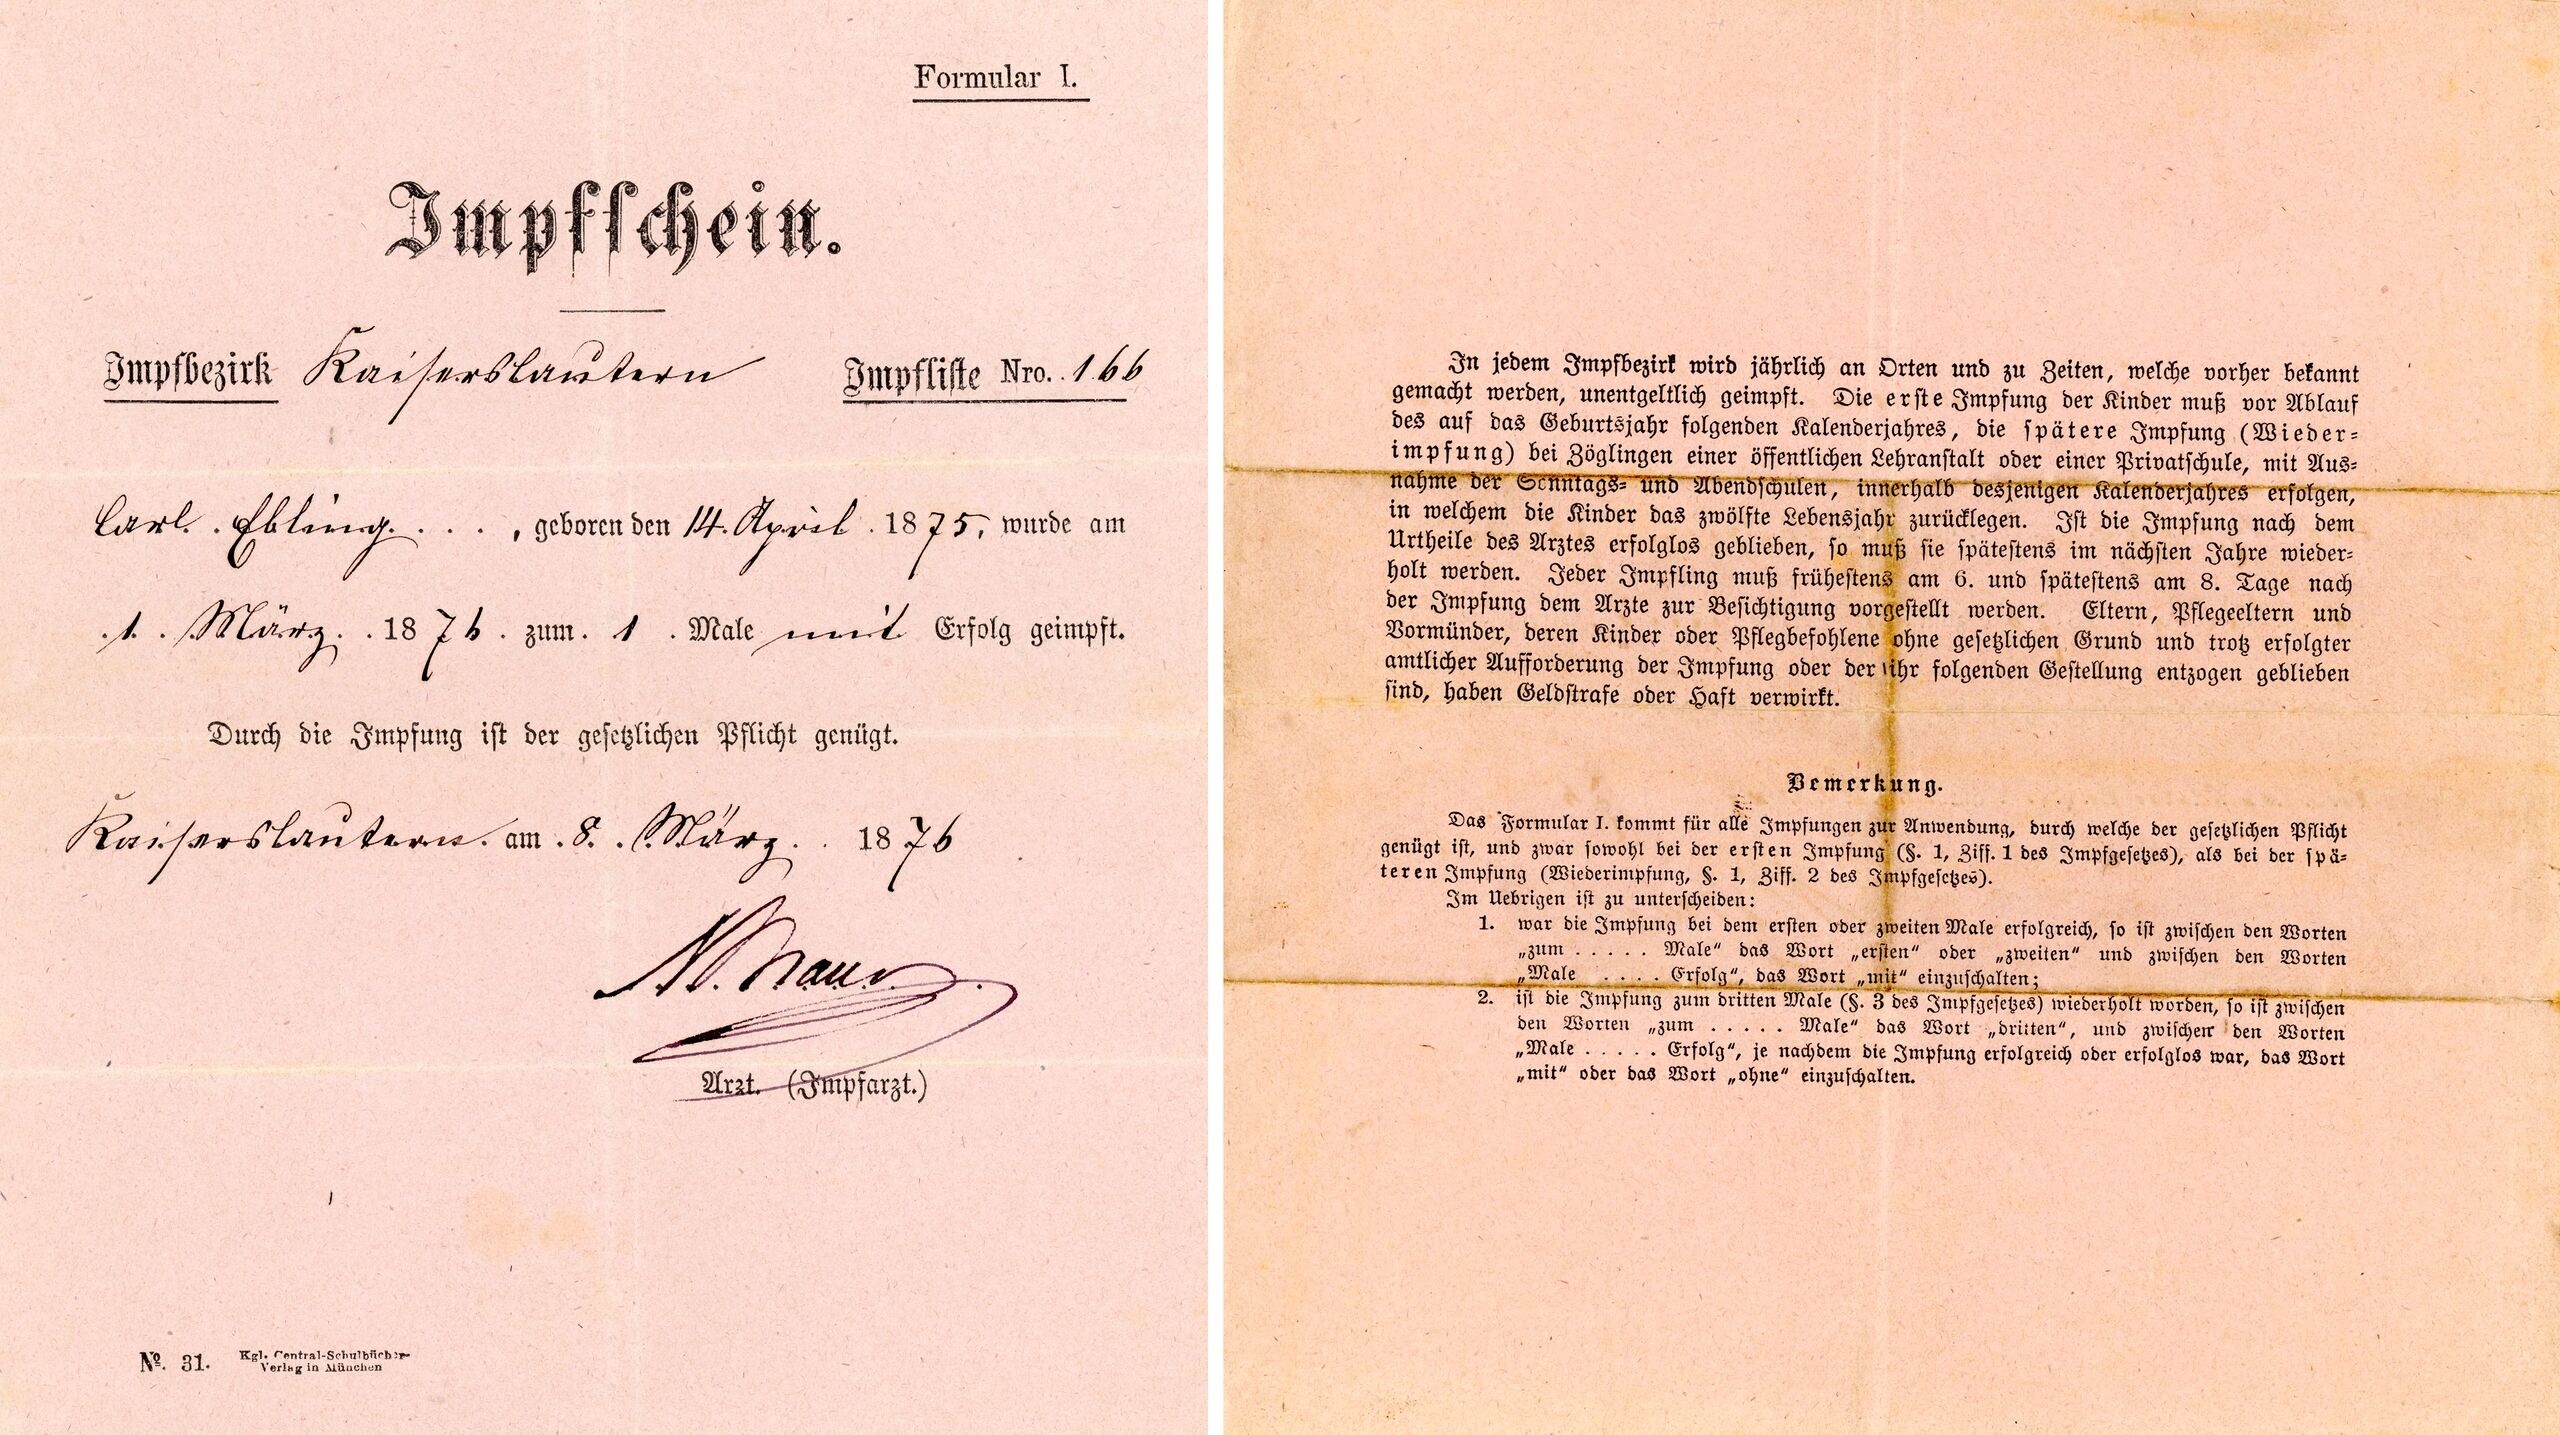 Formular I.
Impfschein.
Impfbezirk Kaiserslautern Impfliste Nro. 166
Carl Ebling, geboren den 14. April 1875, wurde am
1. März 1876 zum 1 Male mit Erfolg geimpft.
Durch die Impfung ist der gesetzlichen Pflicht genügt.
Kaiserslautern am 8. März 1876
Arzt. (Impfarzt.)
No. 31. Kgl. Central-Schulbücher-
Verlag in München
In jedem Impfbezirk wird jährlich an Orten und zu Zeiten, welche vorher bekannt
gemacht werden, unentgeltlich geimpft. Die erste Impfung der Kinder muß vor Ablauf
des auf das Geburtsjahr folgenden Kalenderjahres, die spätere Impfung (Wieder-
impfung) bei Zöglingen einer öffentlichen Lehranstalt oder einer Privatschule, mit Aus-
nahme der Sonntags- und Abendschulen, innerhalb desjenigen Kalenderjahres erfolgen,
in welchem die Kinder das zwölfte Lebensjahr zurücklegen. Ist die Impfung nach dem
Urtheile des Arztes erfolglos geblieben, so muß sie spätestens im nächsten Jahre wieder-
holt werden. Jeder Impfling muß frühestens am 6. und spätestens am 8. Tage nach
der Impfung dem Arzte zur Besichtigung vorgestellt werden. Eltern, Pflegeeltern und
Vormünder, deren Kinder oder Pflegbefohlene ohne gesetzlichen Grund und trotz erfolgter
amtlicher Aufforderung der Impfung oder der ihr folgenden Gestellung entzogen geblieben
sind, haben Geldstrafe oder Haft verwirkt.
Bemerkung.
Das Formular I. kommt für alle Impfungen zur Anwendung, durch welche der gesetzlichen Pflicht
genügt ist, und zwar sowohl bei der ersten Impfung (§. 1, Ziff. 1 des Impfgesetzes), als bei der spä-
teren Impfung (Wiederimpfung, §. 1, Ziff. 2 des Impfgesetzes).
Im Uebrigen ist zu unterscheiden:
1. war die Impfung bei dem ersten oder zweiten Male erfolgreich, so ist zwischen den Worten
„zum ..... Male“ das Wort „ersten“ oder „zweiten“ und zwischen den Worten
„Male ..... Erfolg“, das Wort „mit“ einzuschalten;
2. ist die Impfung zum dritten Male (§. 3 des Impfgesetzes) wiederholt worden, so ist zwischen
den Worten „zum ..... Male“ das Wort „dritten“, und zwischen den Worten
„Male ..... Erfolg“, je nachdem die Impfung erfolgreich oder erfolglos war, das Wort
„mit“ oder das Wort „ohne“ einzuschalten.